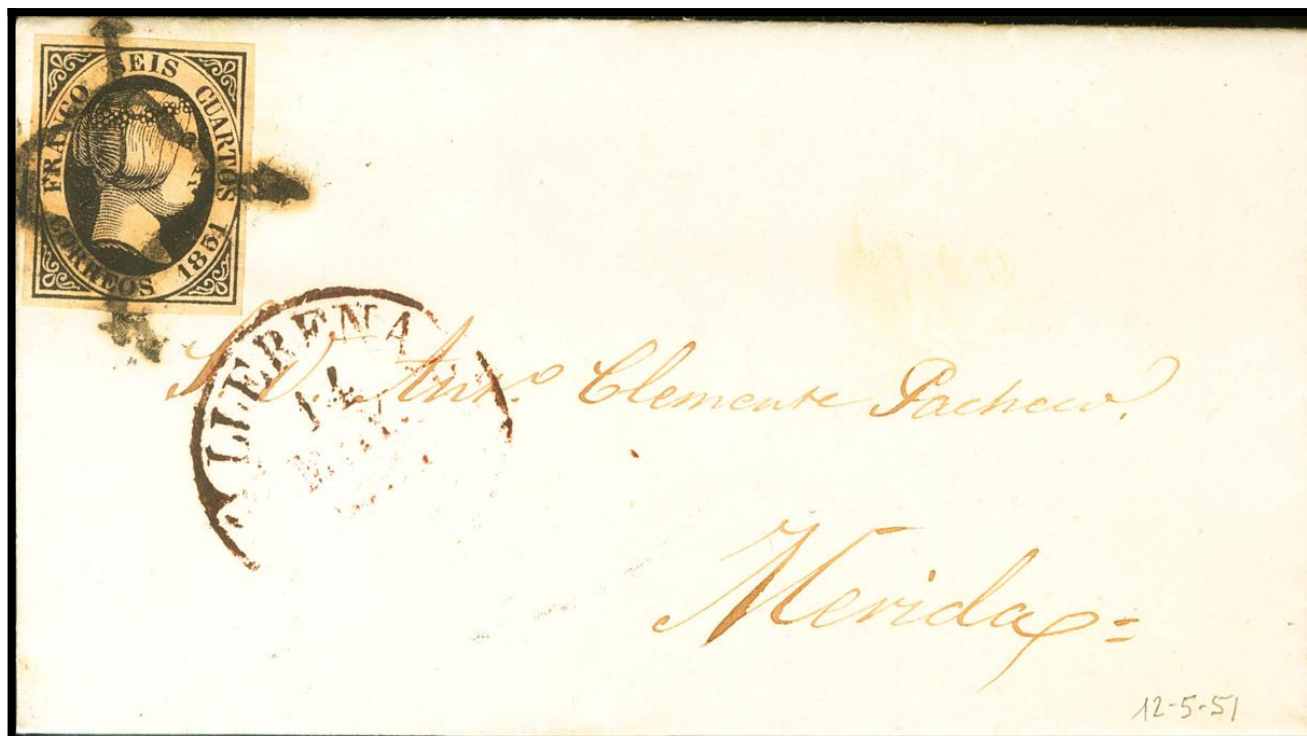 FRANCO SEIS CUARTOS
CORREOS 1851
LLERENA
S. D. Ant.º Clemente Pacheco.
Merida=
12-5-51